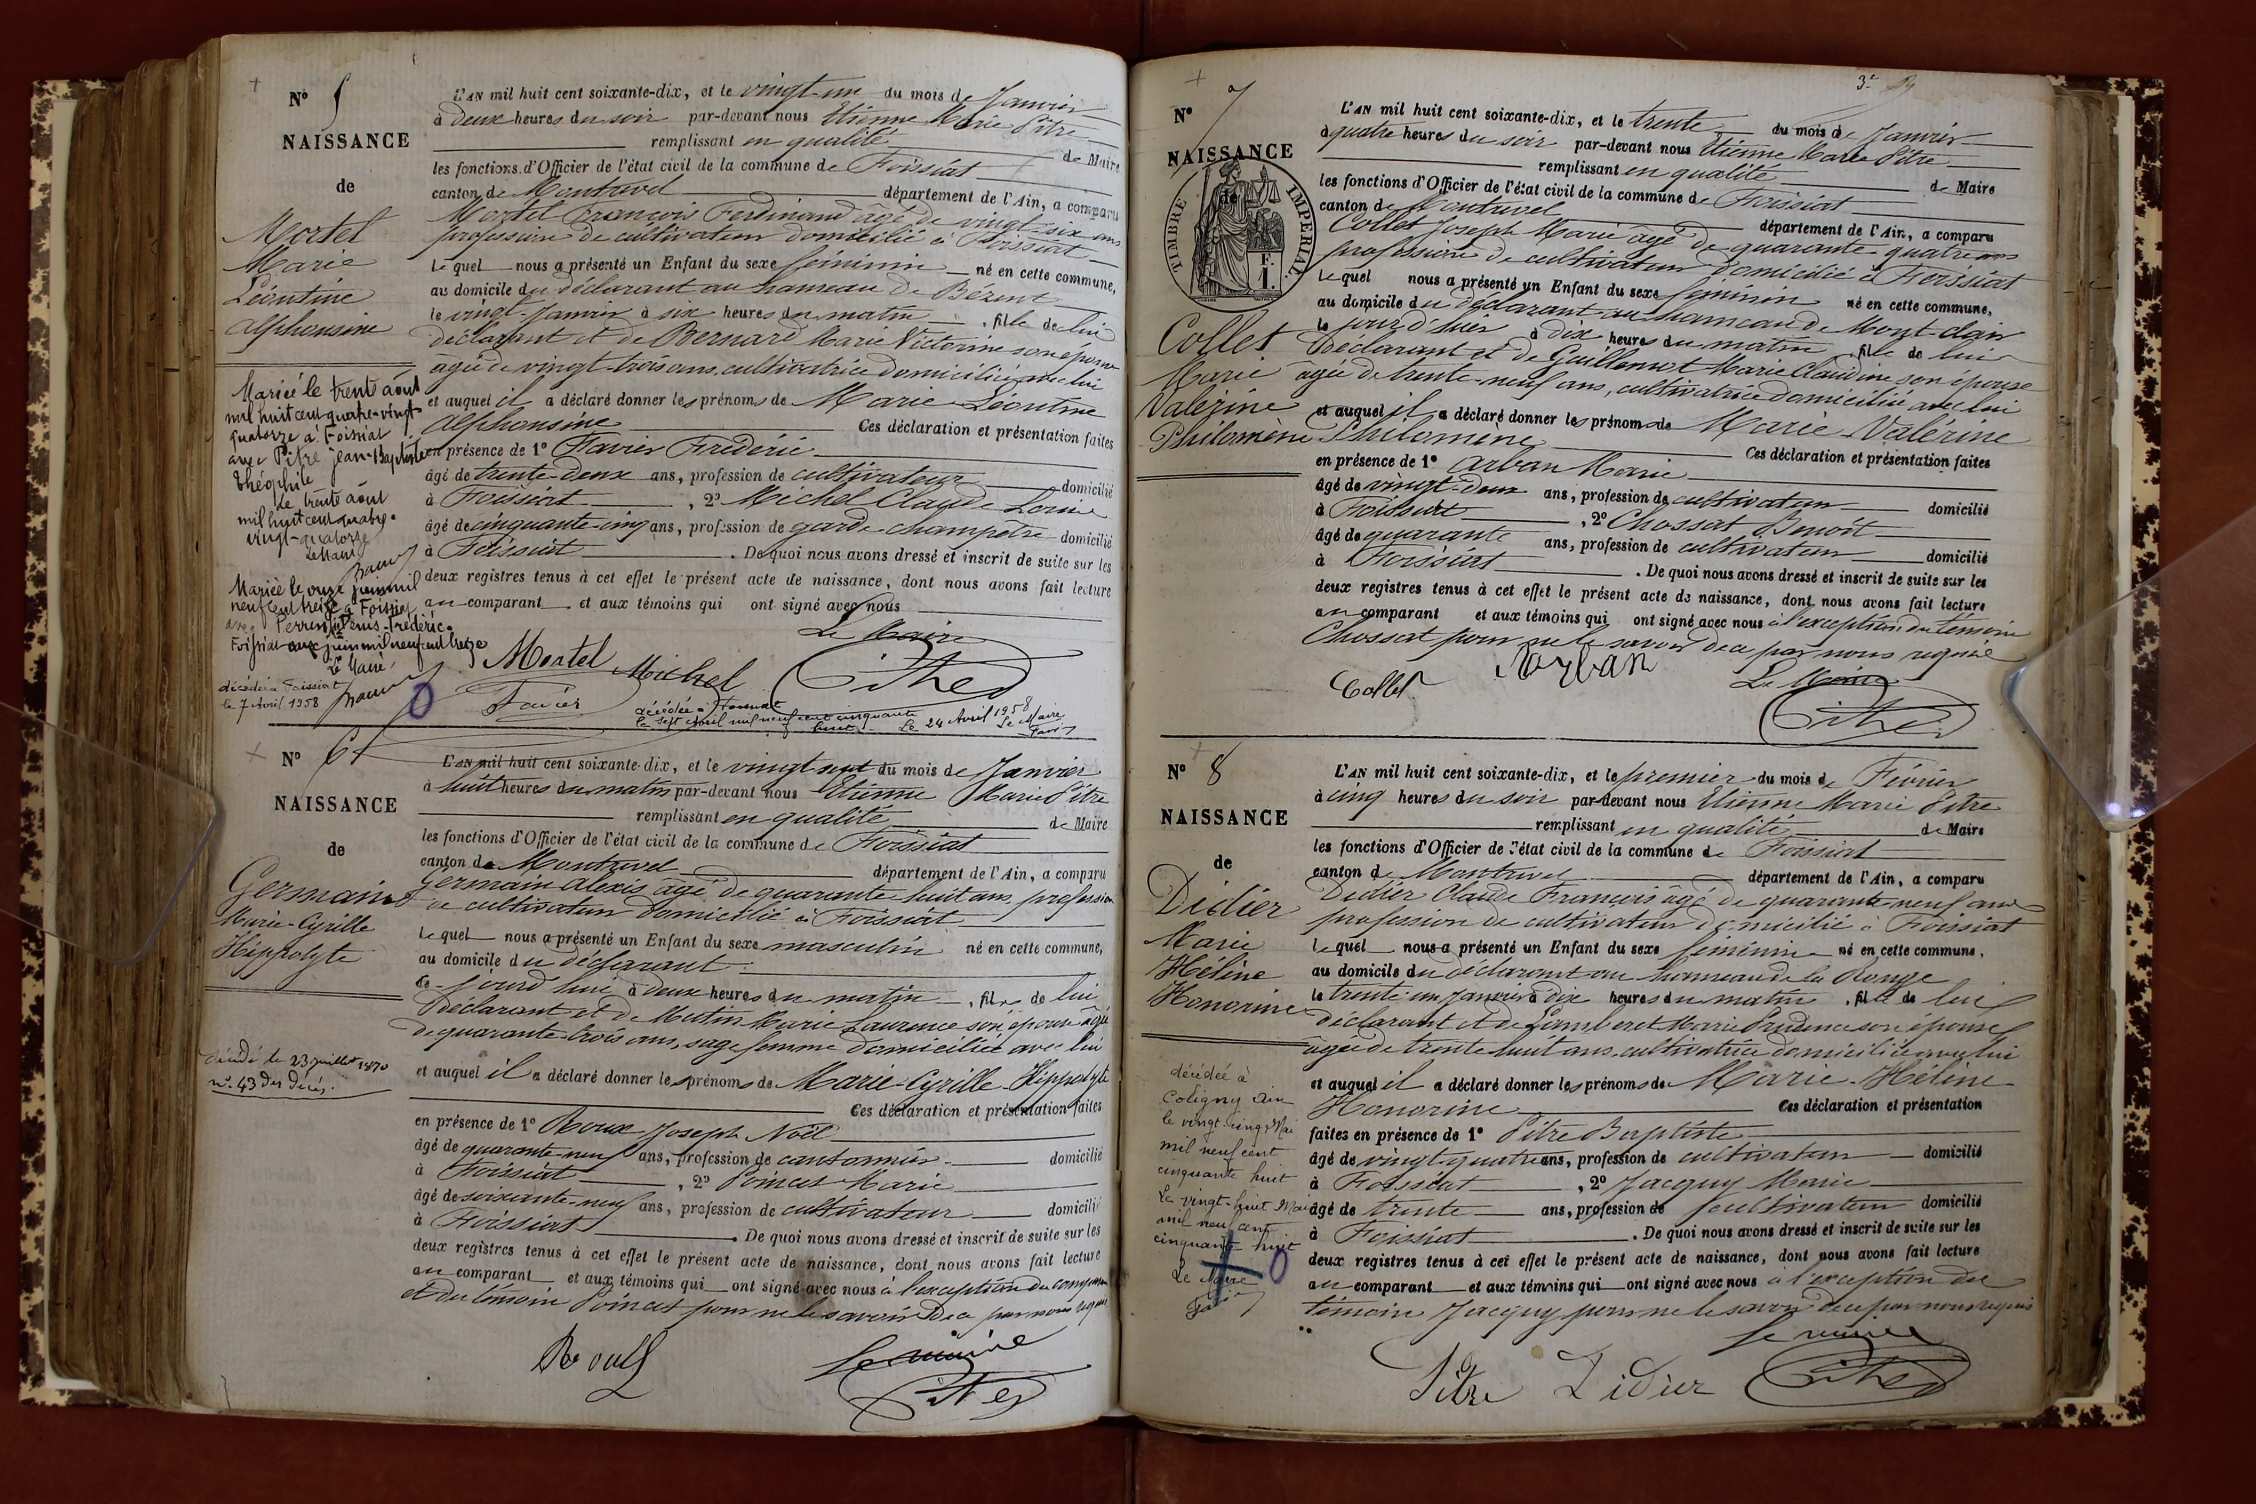 N° 5
NAISSANCE
de
Mortel
Marie
Léontine
Alphonsine
Mariée le trente août
mil huit cent quatre-vingt
quatorze à Foissiat
avec Pitre jean-Baptiste
théophile
Le trente août
mil huit cent quatre-
vingt-quatorze
Le Maire
Mariée le onze juin mil
neuf cent treize à Foissiat
avec Perrin Denis-Frédéric.
Foissiat onze juin mil neuf cent treize
Le Maire,
décédée à Foissiat
le 7 Avril 1958
L'AN mil huit cent soixante-dix, et le vingt-un du mois de Janvier
à deux heures du soir par-devant nous Etienne Marie Pitre
remplissant en qualité de Maire
les fonctions d'Officier de l'état civil de la commune de Foissiat
canton de Montrevel département de l'Ain, a comparu
Mortel François Ferdinand âgé de vingt-six ans
profession de cultivateur domicilié à Foissiat
lequel nous a présenté un Enfant du sexe féminin né en cette commune,
au domicile du déclarant au hameau de Bézent
le vingt Janvier à six heures du matin, fille de lui
déclarant et de Bernard Marie Victorine son épouse
âgée de vingt-trois ans, cultivatrice domiciliée avec lui
et auquel il a déclaré donner les prénoms de Marie Léontine
Alphonsine Ces déclaration et présentation faites
en présence de 1° Favier Frédéric
âgé de trente-deux ans, profession de cultivateur domicilié
à Foissiat, 2° Michel Claude
âgé de cinquante-cinq ans, profession de garde-champêtre domicilié
à Foissiat. De quoi nous avons dressé et inscrit de suite sur les
deux registres tenus à cet effet le présent acte de naissance, dont nous avons fait lecture
au comparant et aux témoins qui ont signé avec nous
Le Maire
Mortel Michel Pitre
Favier
décédée à Foissiat
le sept Avril mil neuf cent cinquante
huit. Le 24 Avril 1958
Le Maire
N° 6
NAISSANCE
de
Germain
Marie-Cyrille
Hippolyte
décédé le 23 juillet 1870
n° 43 des décès.
L'AN mil huit cent soixante-dix, et le vingt sept du mois de Janvier
à huit heures du matin par-devant nous Etienne Marie Pitre
remplissant en qualité de Maire
les fonctions d'Officier de l'état civil de la commune de Foissiat
canton de Montrevel département de l'Ain, a comparu
Germain Alexis âgé de quarante huit ans profession
de cultivateur domicilié à Foissiat
lequel nous a présenté un Enfant du sexe masculin né en cette commune,
au domicile du déclarant
ce jourd'hui à deux heures du matin, fils de lui
Déclarant et de Mutin Marie Laurence son épouse âgée
de quarante-trois ans, sage femme domiciliée avec lui
et auquel il a déclaré donner les prénoms de Marie-Cyrille-Hippolyte
Ces déclaration et présentation faites
en présence de 1° Roux Joseph Noël
âgé de quarante-neuf ans, profession de cantonnier domicilié
à Foissiat, 2° Poincet Marie
âgé de soixante-neuf ans, profession de cultivateur domicilié
à Foissiat. De quoi nous avons dressé et inscrit de suite sur les
deux registres tenus à cet effet le présent acte de naissance, dont nous avons fait lecture
au comparant et aux témoins qui ont signé avec nous à l'exception du comparant
et du témoin Poincet pour ne le savoir De ce par nous requis
Roux
Le maire
Pitre
3e
N° 7
NAISSANCE
de
TIMBRE IMPERIAL
1 F.
Collet
Marie
Valérine
Philomène
L'AN mil huit cent soixante-dix, et le trente du mois de Janvier
à quatre heures du soir par-devant nous Etienne Marie Pitre
remplissant en qualité de Maire
les fonctions d'Officier de l'état civil de la commune de Foissiat
canton de Montrevel département de l'Ain, a comparu
Collet Joseph Marie âgé de quarante-quatre ans
profession de cultivateur domicilié à Foissiat
lequel nous a présenté un Enfant du sexe féminin né en cette commune,
au domicile du déclarant au hameau de Mont-clair
le jour d'hier à dix heures du matin, fille de lui
Déclarant et de Guillemot Marie Claudine son épouse
âgée de trente-neuf ans, cultivatrice domiciliée avec lui
et auquel il a déclaré donner les prénoms de Marie Valérine
Philomène Ces déclaration et présentation faites
en présence de 1° Arban Marie
âgé de vingt-deux ans, profession de cultivateur domicilié
à Foissiat, 2° Chossat Benoît
âgé de quarante ans, profession de cultivateur domicilié
à Foissiat. De quoi nous avons dressé et inscrit de suite sur les
deux registres tenus à cet effet le présent acte de naissance, dont nous avons fait lecture
au comparant et aux témoins qui ont signé avec nous à l'exception du témoin
Chossat pour ne le savoir de ce par nous requis
Collet Arban
Le Maire
Pitre
N° 8
NAISSANCE
de
Didier
Marie
Héline
Honorine
décédée à
Coligny Ain
le vingt-cinq Mai
mil neuf cent
cinquante huit
Le vingt-huit Mai
mil neuf cent
cinquante huit
Le Maire
L'AN mil huit cent soixante-dix, et le premier du mois de Février
à cinq heures du soir par-devant nous Etienne Marie Pitre
remplissant en qualité de Maire
les fonctions d'Officier de l'état civil de la commune de Foissiat
canton de Montrevel département de l'Ain, a comparu
Didier Claude François âgé de quarante-neuf ans
profession de cultivateur domicilié à Foissiat
lequel nous a présenté un Enfant du sexe féminin né en cette commune,
au domicile du déclarant au hameau de la Rouge
le trente un Janvier à dix heures du matin, fille de lui
déclarant et de Lamberet Marie Prudence son épouse
âgée de trente huit ans, cultivatrice domiciliée avec lui
et auquel il a déclaré donner les prénoms de Marie-Héline
Honorine Ces déclaration et présentation
faites en présence de 1° Pitre Baptiste
âgé de vingt-quatre ans, profession de cultivateur domicilié
à Foissiat, 2° Jacquy Marie
âgé de trente ans, profession de cultivateur domicilié
à Foissiat. De quoi nous avons dressé et inscrit de suite sur les
deux registres tenus à cet effet le présent acte de naissance, dont nous avons fait lecture
au comparant et aux témoins qui ont signé avec nous à l'exception du
témoin Jacquy pour ne le savoir de ce par nous requis
le maire
Pitre Didier Pitre